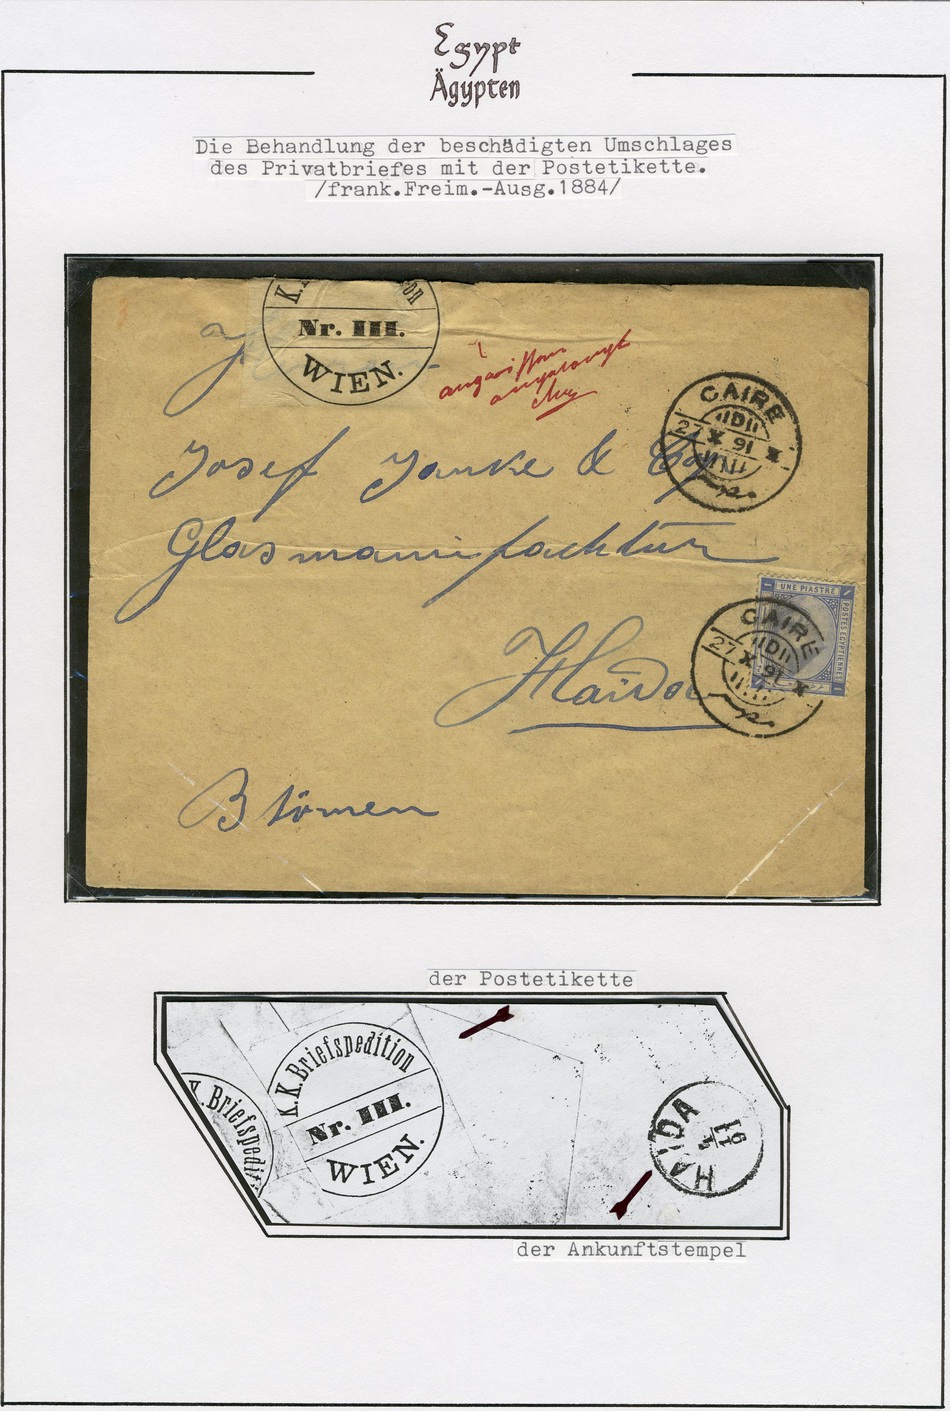 Egypt
Ägypten
Die Behandlung der beschädigten Umschlages
des Privatbriefes mit der Postetikette.
/frank.Freim.-Ausg.1884/
Nr. III.
WIEN.
CAIRE
D
27 X 91
مصر
Josef Janke & Co
Glasmanufachtur
UNE PIASTRE
POSTES EGYPTIENNES
CAIRE
D
27 X 91
مصر
Haida
Bömen
der Postetikette
K.K. Briefspedition
Nr. III.
WIEN.
K. Briefspedit
HAIDA
91
der Ankunftstempel